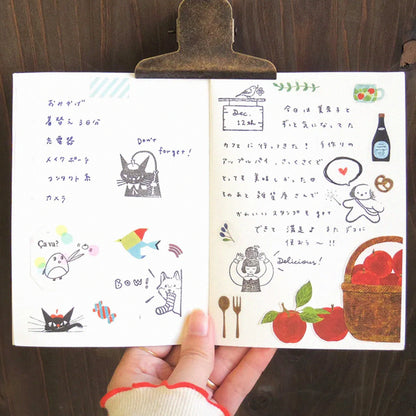 おみやげ
着替え3日分
充電器
メイクポーチ
コンタクト系
カメラ
Don't
forget!
Ça va?
BOW!
Dec.
12th
今日は美希子と
ずっと気になってた
カフェに行ってきた! 手作りの
アップルパイ、さくさくで
とっても美味しかった
そのあと雑貨屋さんで
かわいいスタンプもゲット
できて満足♪ またデコに
使おう〜!!
Delicious!